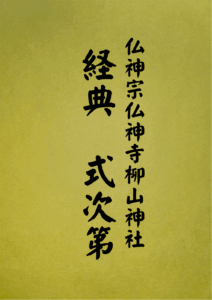 仏神宗仏神寺柳山神社
経典 式次第